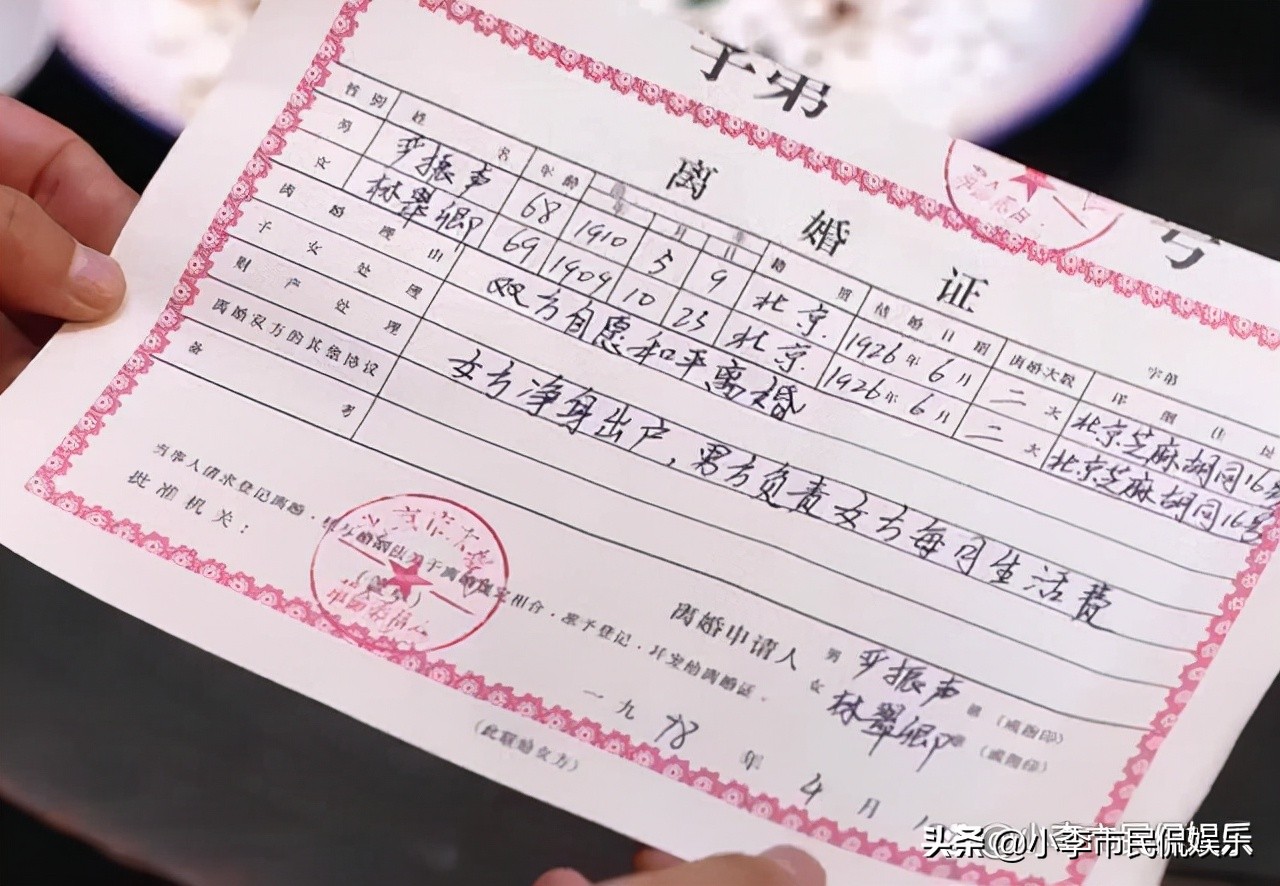 字第
号
离婚证
性别 姓名 年龄 月 日 籍贯 结婚日期 离婚次数 详细住址
字第
男 严振声 68 1910 5 9 北京. 1926年6月 二次 北京芝麻胡同16号
女 林翠卿 69 1909 10 23 北京. 1926年6月 二次 北京芝麻胡同16号
离婚理由 双方自愿和平离婚
子女处理
财产处理 女方净身出户，男方负责女方每月生活费
离婚双方的其他协议
备考
当事人请求登记离婚，规定相合，准予登记，并发给离婚证．
批准机关：
离婚申请人 男 严振声 （或指印）
女 林翠卿 章（或指印）
一九78年4月
（此联给女方）
头条@小李市民侃娱乐